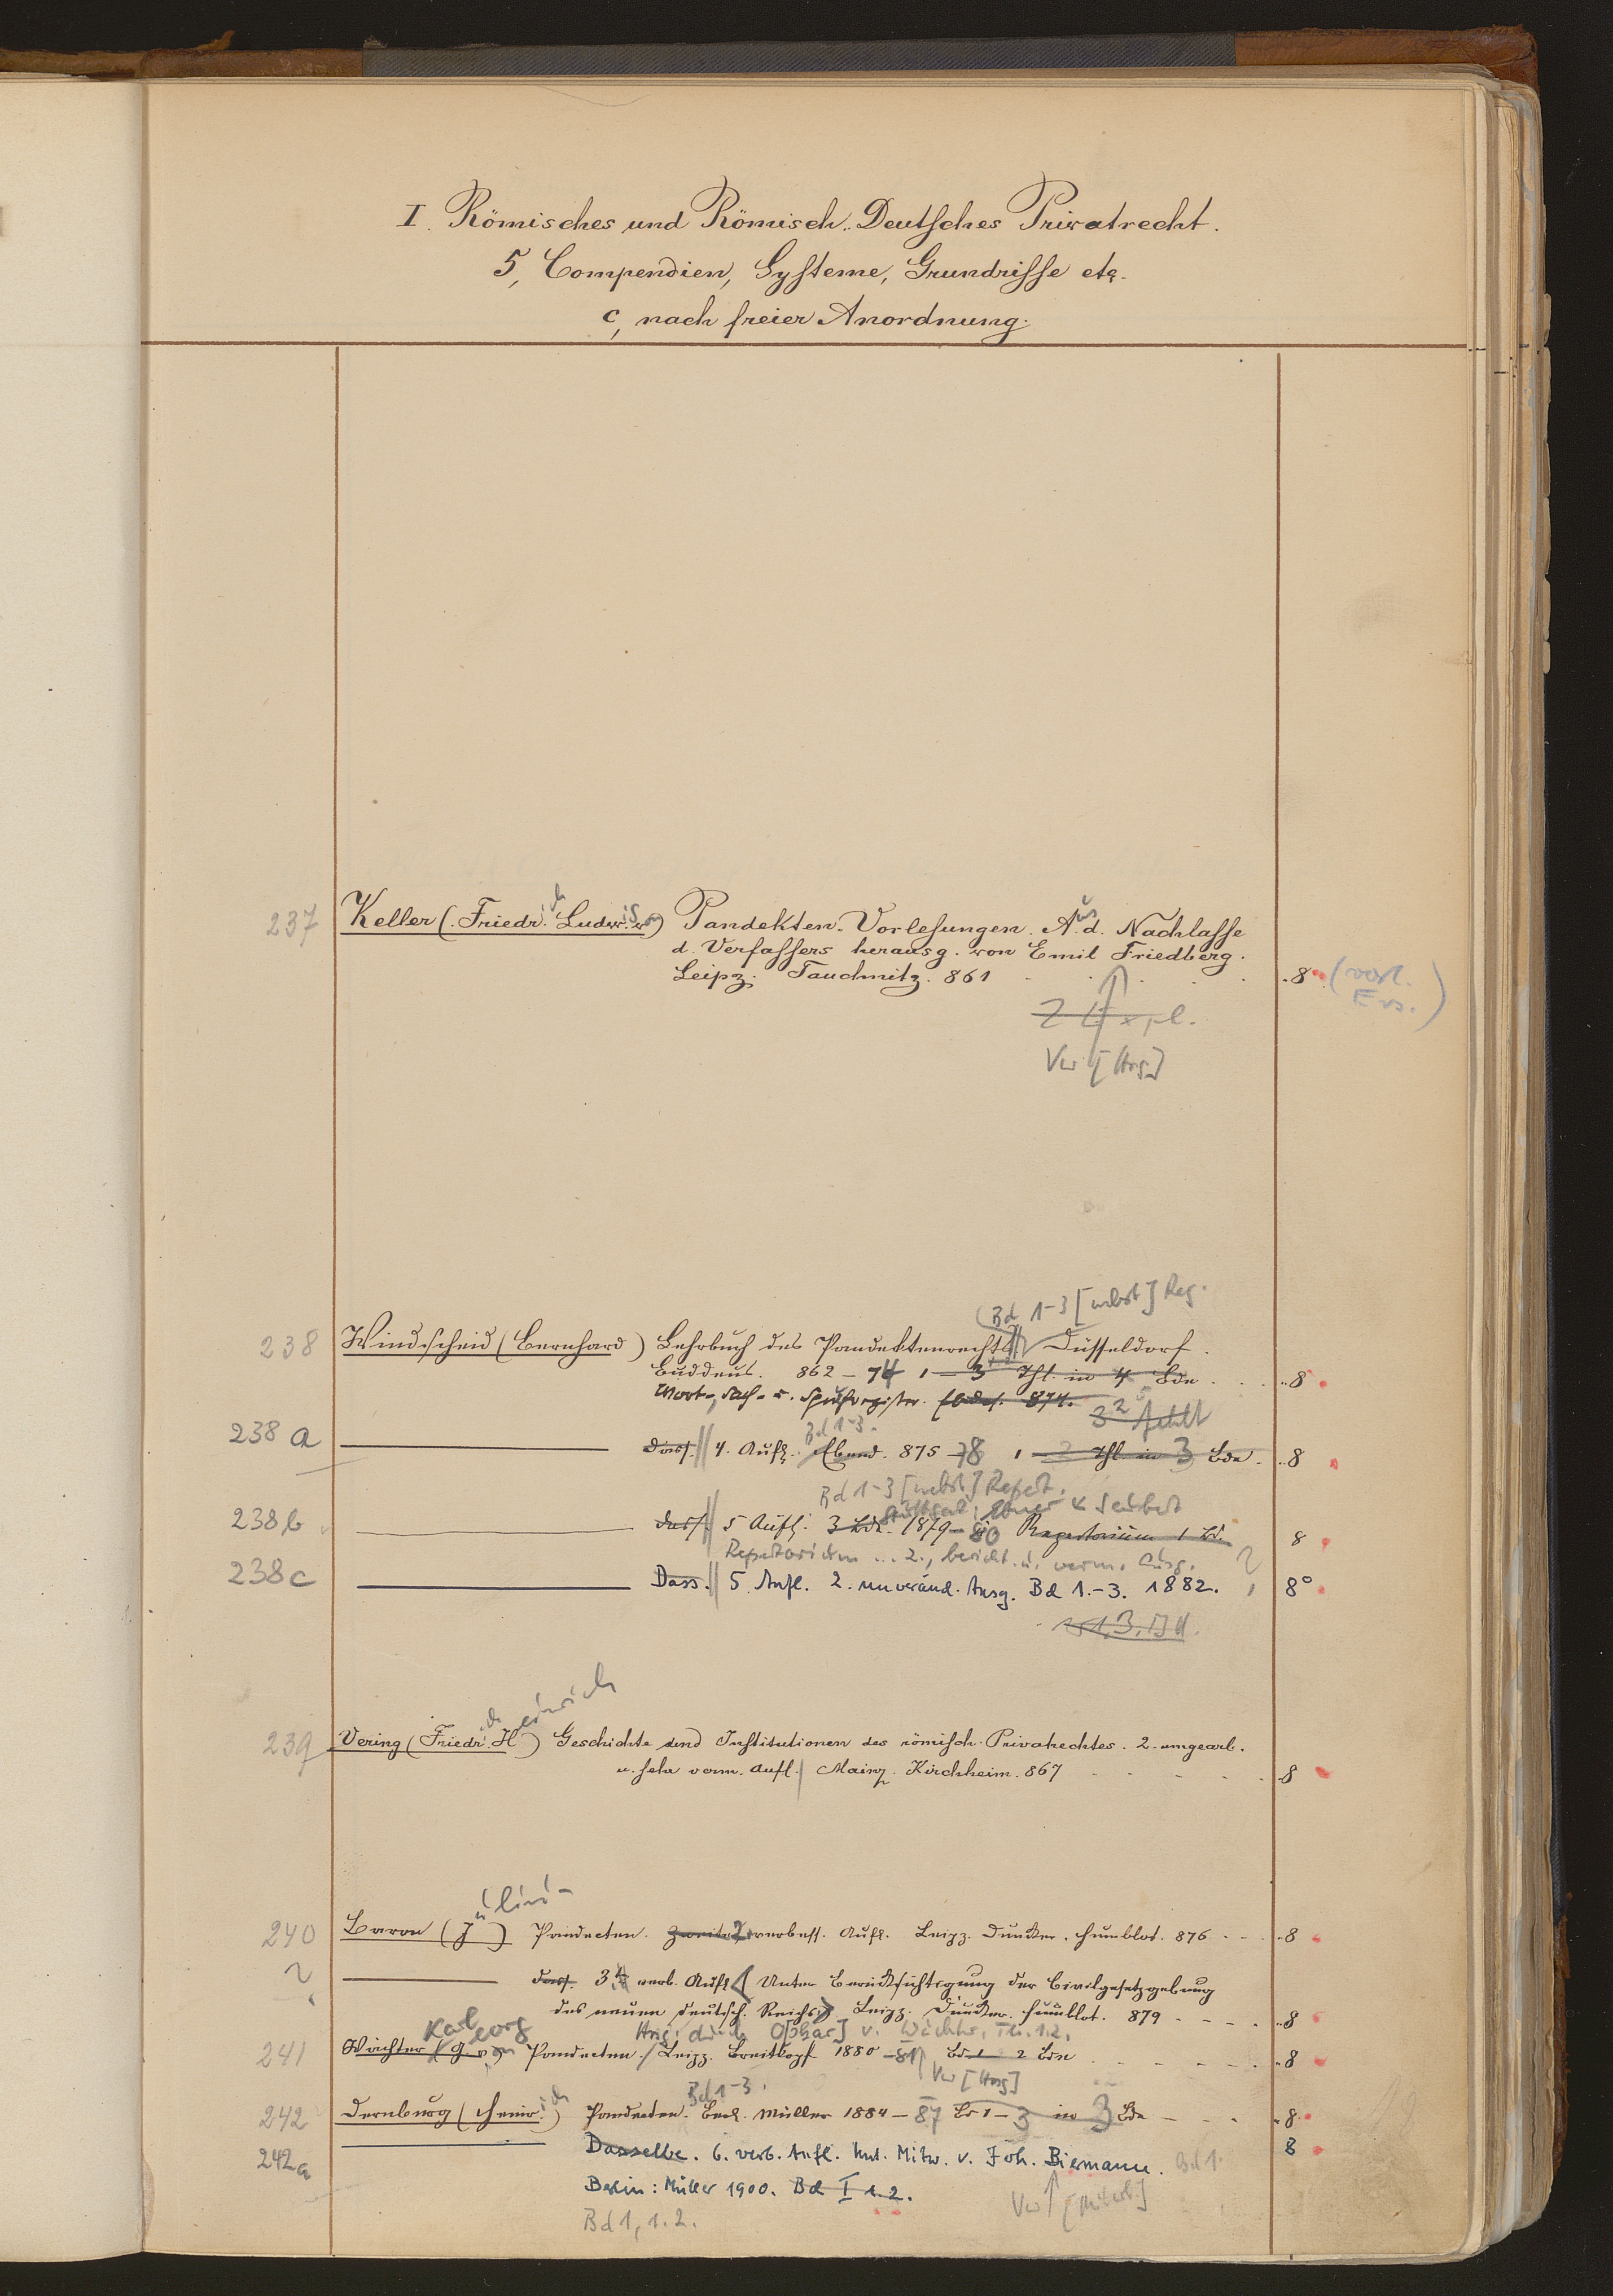 I. Römisches und Römisch-Deutsches Privatrecht.
5, Compendien, Systeme, Grundrisse etc.
c, nach freier Anordnung.
237 Keller (Friedrich Ludwig von) Pandekten-Vorlesungen. Aus d. Nachlasse
d. Verfassers herausg. von Emil Friedberg.
Leipz. Tauchnitz. 861 8 (vorl.
Ers.)
2 Expl.
Vw [Hrsg]
Bd 1-3 [nebst] Reg.
238 Windscheid (Bernhard) Lehrbuch des Pandektenrechts Düsseldorf.
Buddeus. 862-74 1-3 Thl. in 4 Bde 8
Wort-, Sach- u. Ebdas. 874.
fehlt
Bd 1-3.
238a Dass. 4. Aufl. Ebend. 875-78 Thl in 3 Bde. 8
Bd 1-3 [nebst] Repert.
Stuttgart, Ebner & Seubert
238b Dass. 5 Aufl. 3 Bde. 1879-80 Repertorium 1 Bd. 8
Repertorium ... 2., bericht. u. verm. Ausg.
238c Dass. 5. Aufl. 2. unveränd. Ausg. Bd 1.-3. 1882. 8°
239 Vering (Friedrich Heinrich) Geschichte und Institutionen des römisch. Privatrechtes. 2. umgearb.
u. sehr verm. Aufl. Mainz. Kirchheim. 867 8
240 Baron (Julius) Pandecten. Zweite 2. verbess. Aufl. Leipz. Duncker. Humblot. 876 8
Dass. 3. verb. Aufl. Unter Berücksichtigung der Civilgesetzgebung
des neuen deutsch. Reichs Leipz. Duncker. Humblot. 879 8
Hrsg. durch O[skar] v. Wächter. Th. 1.2.
241 Wächter (Karl Georg von) Pandecten. Leipz. Breitkopf 1880-81 Bd 1 2 Bde 8
Vw [Hrsg]
Bd 1-3.
242 Dernburg (Heinrich) Pandecten. Berl. Müller 1884-87 Bd 1-3 in 3 Bde 8
242a Dasselbe. 6. verb. Aufl. Unt. Mitw. v. Joh. Biermann. Bd 1. 8
Berlin: Müller 1900. Bd I 1.2.
Vw [Mitarb.]
Bd 1, 1.2.